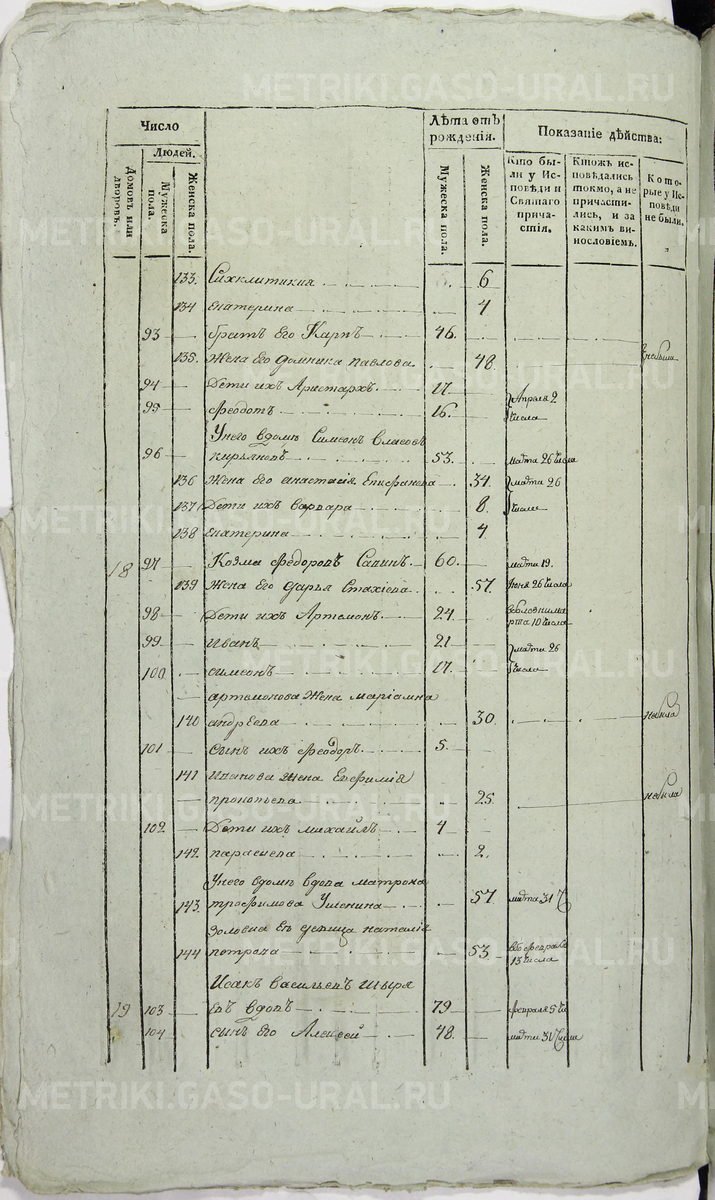 Число
Людей.
Домовъ или дворовъ.
Мужеска пола.
Женска пола.
Лѣта отъ рожденія.
Мужеска пола.
Женска пола.
Показаніе дѣйства:
Кто были у Исповѣди и Святаго причастія.
Ктожъ исповѣдались токмо, а не причастились, и за какимъ винословіемъ.
Которые у Исповѣди не были.
133. Сѵнклитикия 6
134 екатерина 4
93 братъ Его Карпъ 46.
135. Жена Его домника павлова 48.
94 Дети ихъ Аристархъ 17. Апреля 2
95 Феодотъ 16. числа
Унего вдомѣ Симеонъ Власовъ
96 53. марта 26 числа
136 Жена Его анастасія Епифанова 34. марта 26
137 Дети ихъ варвара 8. числа
138 екатерина 4
18 97 Козма Федоровъ Сапинъ 60. марта 19.
139 Жена Его дарья Стахіева 57. 26 числа
98 Дети ихъ Артемонъ 24 марта 10 числа
99 Иванъ 21 марта 26
100 симеонъ 17. числа
артемонова Жена маріамна
140 андреева 30. небыла
101 сынъ ихъ Феодоръ 5.
141 Иванова жена Евфимія
прокопьева 25 небыла
102 Дети ихъ михаилъ 4
142 параскева 2.
Унего вдомѣ вдова матрона
143. трофимова 57 марта 31 Ч
золовка Ея девица наталія
144 петрова 53. февраля
13 числа
Исакъ васильевъ Шыря
19 103 евъ вдовъ 79 февраля 5 Чи
104 сынъ Его Алексей 48. марта 31 Числа
METRIKI.GASO-URAL.RU